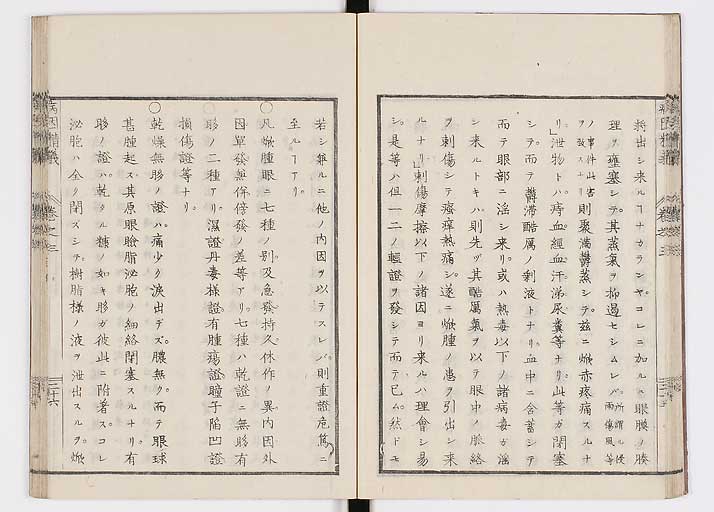 將出シ來ルヿナカランヤ。コレニ加ルニ眼膜ノ腠
理ヲ壅塞シテ。其蒸氣ヲ抑遏セシムレバ。所謂ル侵雨傷風等
ノ事件此害ヲ致スナリ則聚滯鬱蒸シテ。茲ニ焮赤疼痛スルナ
リ」泄物トハ。痔血經血汗涕尿糞等ナリ。此等ガ閉塞
シテ。而テ鬱滯酷厲ノ剩液トナリ。血中ニ含畜シテ
而テ眼部ニ滛シ来リ。或ハ熱毒以下ノ諸病毒ガ滛
シ来ルトキハ則先ヅ其酷厲氣ヲ以テ眼中ノ脈絡
ヲ刺傷シテ。痿痺熱痛シ。遂ニ焮腫ノ患ヲ引出シ来
ルナリ」刺傷摩擦以下ノ諸因ヨリ来ルハ理會シ易
シ。是等ハ但一二ノ輕證ヲ發シテ而テ已ム。然ドモ
若シ兼ルニ他ノ内因ヲ以テスレバ。則重證危篤ニ
至ルヿアリ。
○凡焮腫眼ニ七種ノ別。及急發持久休作ノ異。内因外
因單發與併發ノ差等アリ。七種ハ乾證ニ無眵有
眵ノ二種アリ。濕證丹毒様證有腫瘍證瞳子陷凹證
損傷證等ナリ。
○乾燥無眵ノ證ハ。痛少ク淚出デズ。膿無ク而テ眼球
甚腫起ス其原眼瞼脂泌胞ノ細絡閉塞スルナリ。有
眵ノ證ハ乾タル糠ノ如キ眵ガ彼此ニ附著ス。コレ
泌胞ハ全ク閉ズシテ。樹脂様ノ液ヲ泄出スルヲ。焮
病因精義
巻之三
三十六